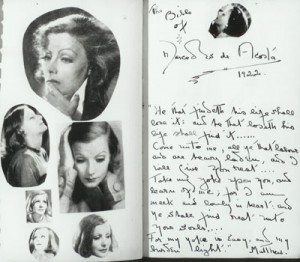 The
Bible
of
Mercedes de Acosta
1922
He that findeth his life shall
lose it: and he that loseth his
life shall find it.....
Come unto me, all ye that labour
and are heavy laden, and I
will give you rest....
Take my yoke upon you, and
learn of me, for I am
meek and lowly in heart: and
ye shall find rest unto
your souls....
For my yoke is easy, and my
burden light. Matthew.